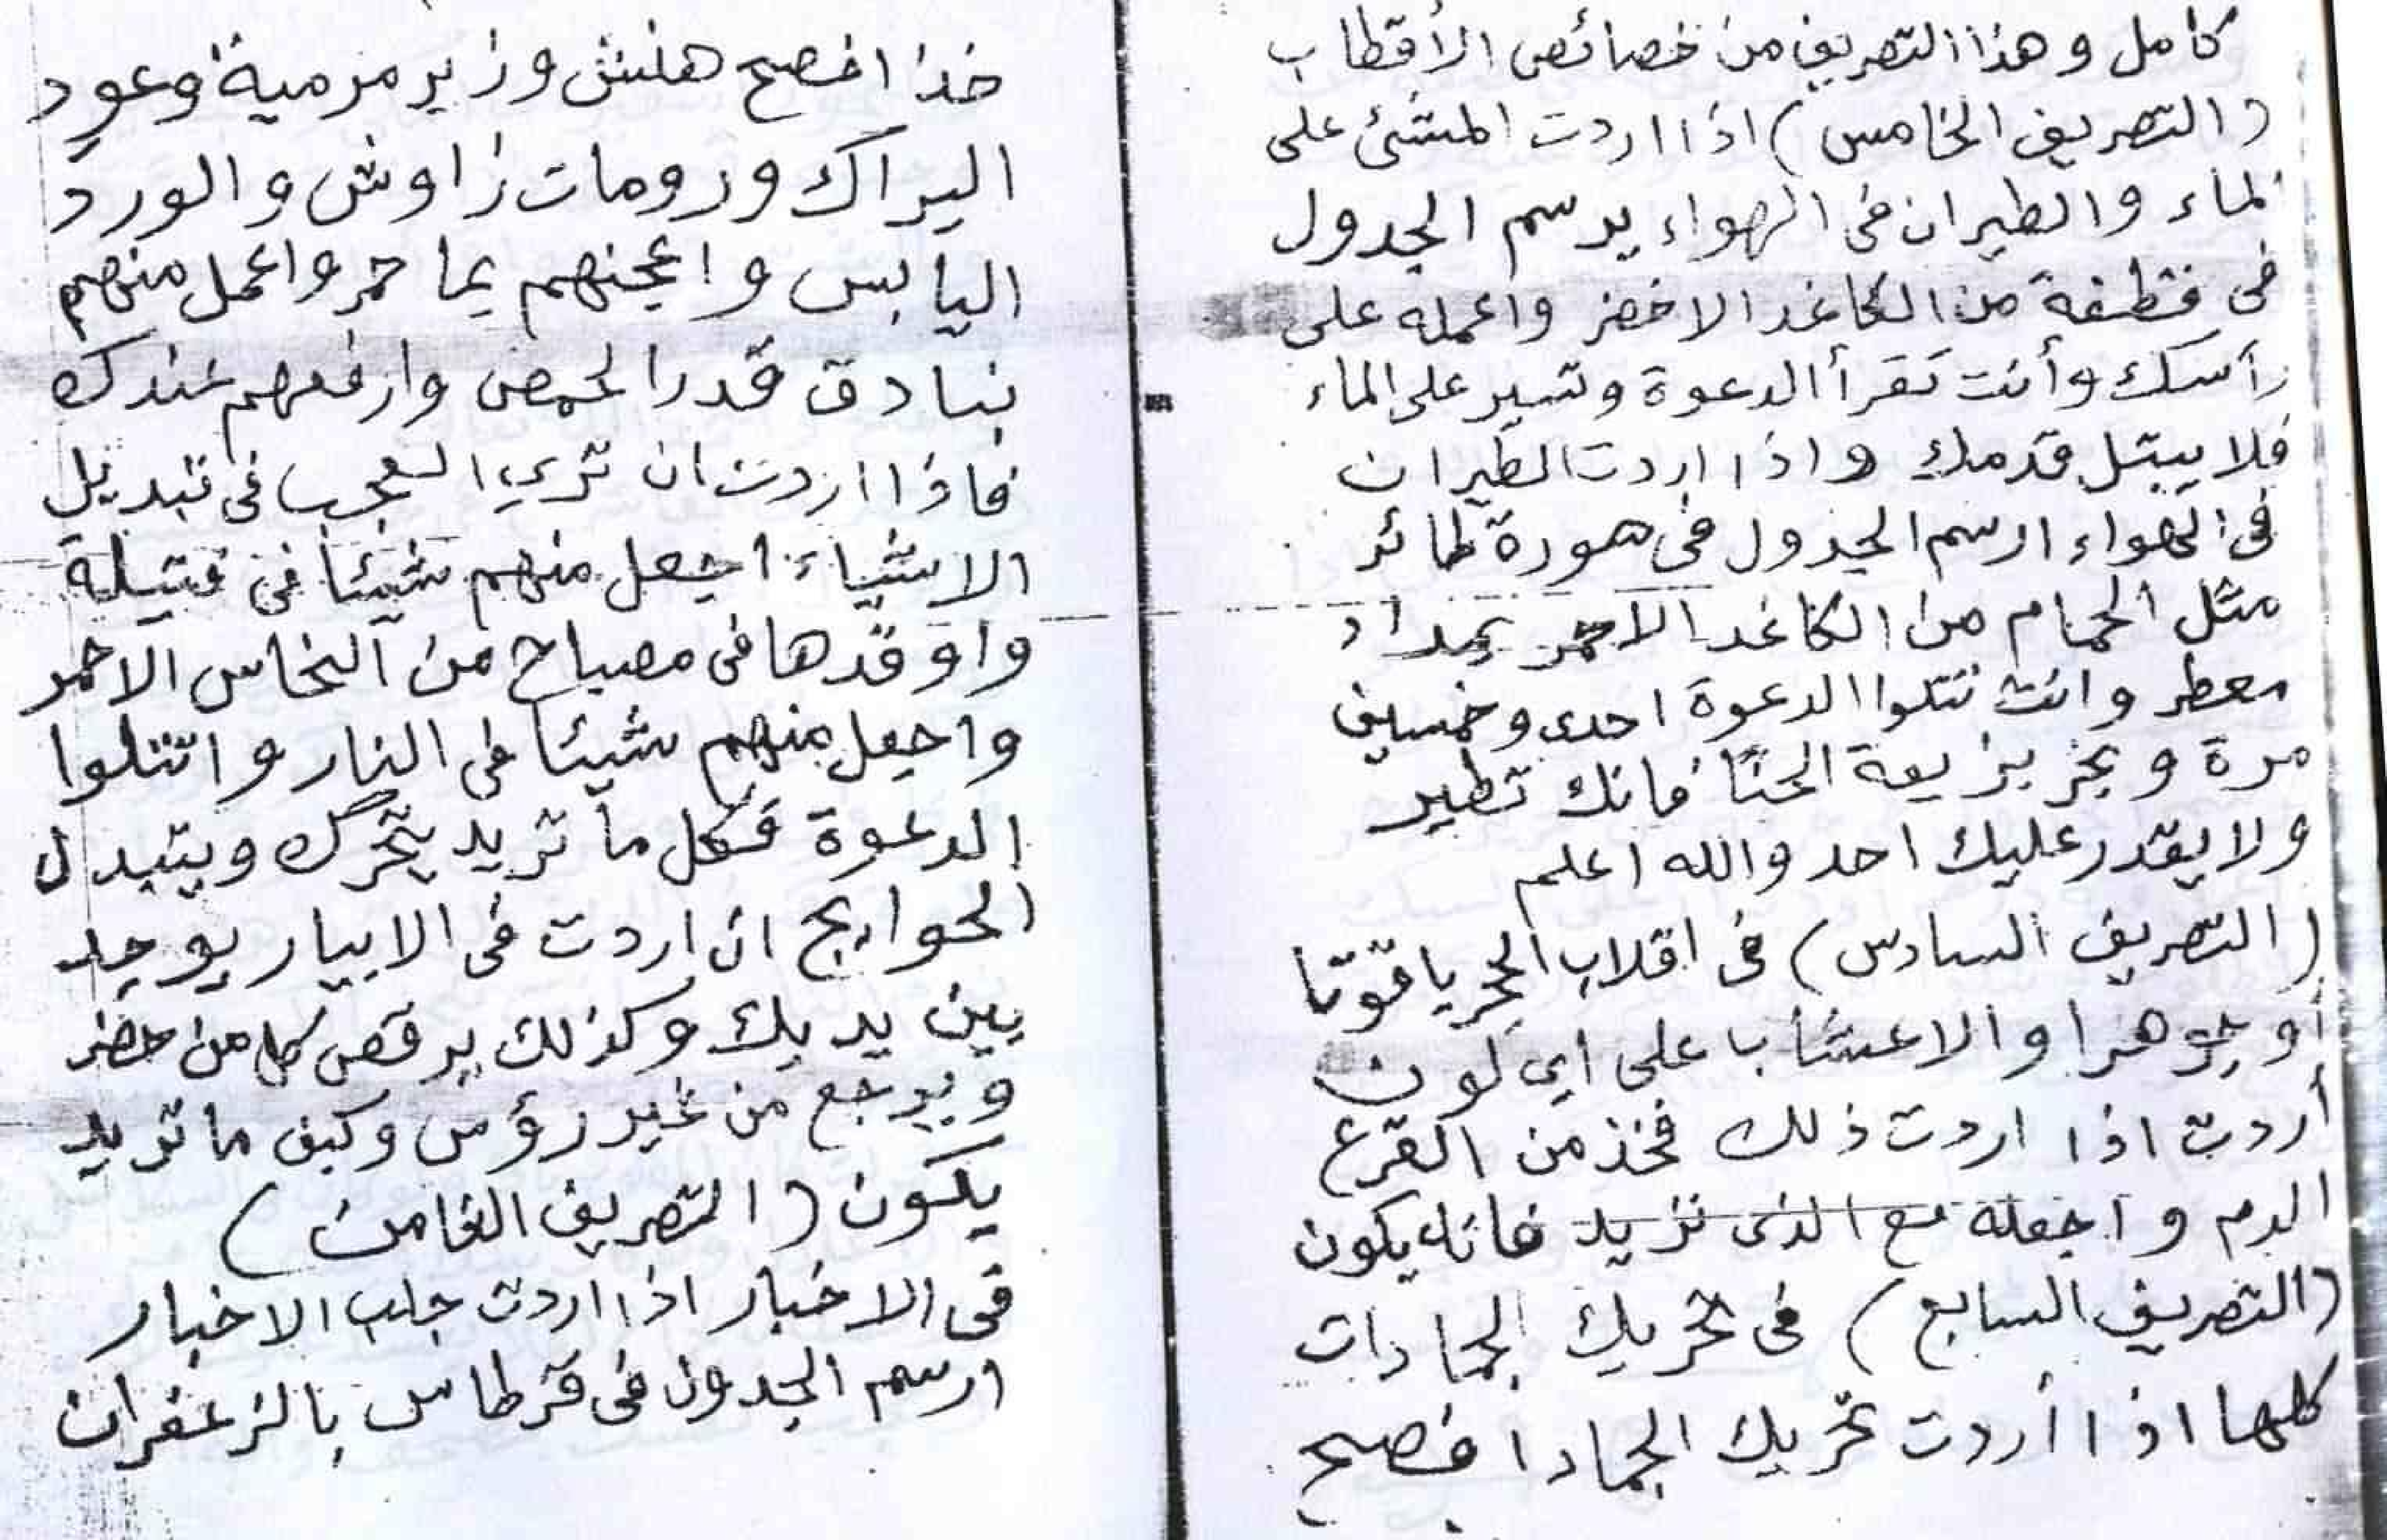 كامل و هذا التصريف من خصائص الأقطاب
(التصريف الخامس) اذا اردت المشئ على
لماء والطيران فى الهواء يرسم الجدول
فى قطفة من الكاغد الاخضر واعمله على
رأسك وأنت تقرأ الدعوة وتسير على الماء
فلا يبتل قدمك واذا اردت الطيران
فى الهواء ارسم الجدول فى صورة طائر
مثل الحمام من الكاغد الاحمر بمداد
معطر وانت تتلوا الدعوة احدى وخمسين
مرة و بخر بزيعة الحنّا فانك تطير
ولا يقدر عليك احد والله اعلم
(التصريف السادس) فى اقلاب الحجر ياقوتا
أو جوهرا والاعشابا على اي لون
أردت اذا اردت ذلك فخذ من القرع
الدم واجعله مع الذى تزيد فانه يكون
(التصريف السابع) فى تحريك الجمادات
كلها اذا أردت تحريك الجمادا فصح
خذ ا فصح هلنش وزير مرمية وعود
اليراك ورومات زاوش والورد
اليابس واعجنهم بما حمر واعمل منهم
بنادق قدر الحمص وارفعهم عندك
فاذا اردت ان تري العجب فى تبديل
الاشياء اجعل منهم شيئا فى فتيلة
واوقدها فى مصباح من النحاس الاحمر
واجعل منهم شيئا فى النار واتتلوا
الدعوة فكل ما تريد يتحرك ويتبدل
الحوايج ان اردت فى الابيار يوجد
بين يديك وكذلك يرقص كل من حضر
ويرجع من غير رؤس وكيف ما تريد
يكون (التصريف الثامن)
فى الاخبار اذا اردت جلب الاخبار
ارسم الجدول فى قرطاس بالزعفران